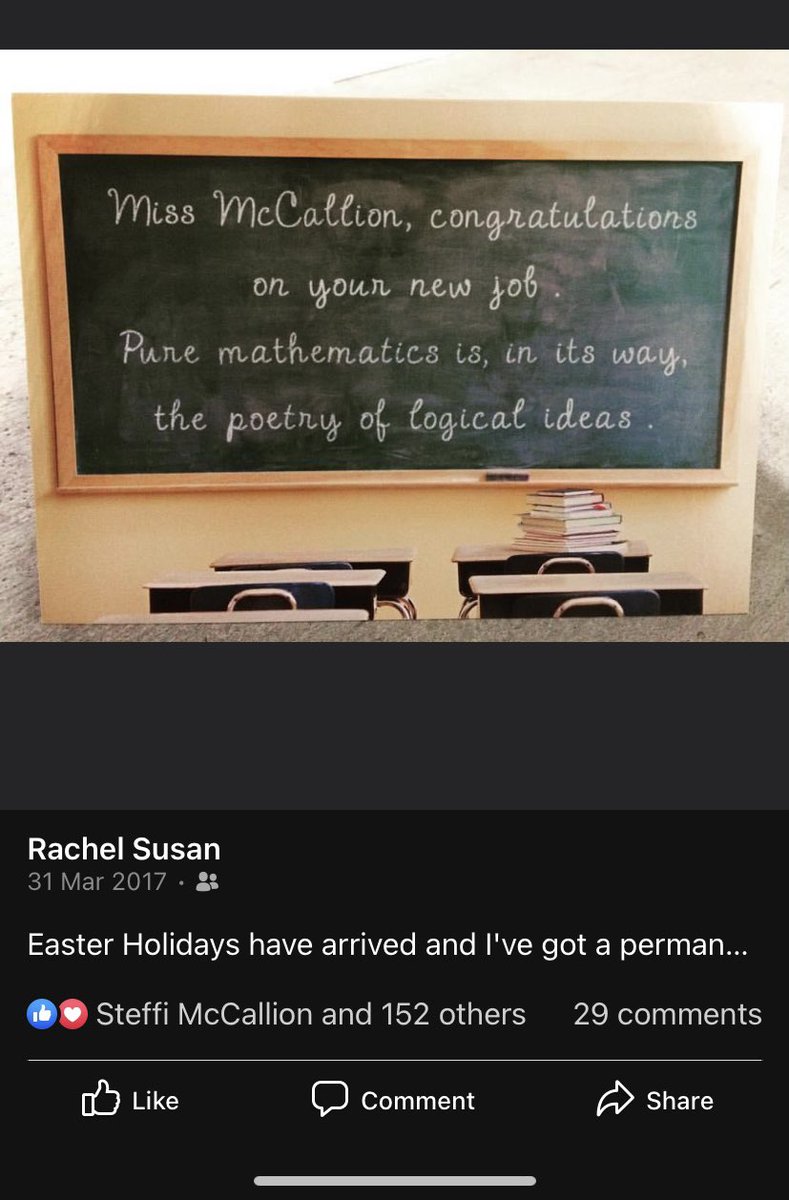 Miss McCallion, congratulations
on your new job .
Pure mathematics is, in its way,
the poetry of logical ideas .
Rachel Susan
31 Mar 2017 ·
Easter Holidays have arrived and I've got a perman...
Steffi McCallion and 152 others 29 comments
Like Comment Share